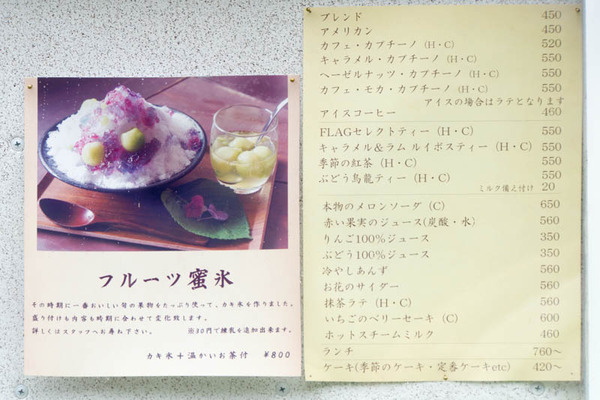 フルーツ蜜氷
その時期に一番おいしい旬の果物をたっぷり使って、カキ氷を作りました。
盛り付けも内容も時期に合わせて変化致します。
詳しくはスタッフへお尋ね下さい。 ※30円で練乳を追加出来ます。
カキ氷+温かいお茶付 ¥800
ブレンド 450
アメリカン 450
カフェ・カプチーノ (H・C) 520
キャラメル・カプチーノ (H・C) 550
ヘーゼルナッツ・カプチーノ (H・C) 550
カフェ・モカ・カプチーノ (H・C) 550
アイスの場合はラテとなります
アイスコーヒー 460
FLAGセレクトティー (H・C) 550
キャラメル&ラム ルイボスティー (H・C) 550
季節の紅茶 (H・C) 550
ぶどう烏龍ティー (H・C) 550
ミルク備え付け 20
本物のメロンソーダ (C) 650
赤い果実のジュース(炭酸・水) 560
りんご100%ジュース 350
ぶどう100%ジュース 350
冷やしあんず 560
お花のサイダー 560
抹茶ラテ (H・C) 560
いちごのベリーセーキ (C) 600
ホットスチームミルク 460
ランチ 760〜
ケーキ(季節のケーキ・定番ケーキetc) 420〜